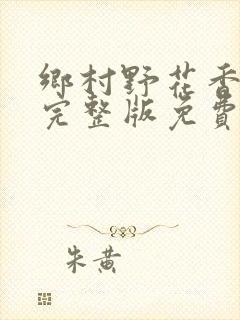 鄉村野花香
完整版免費
朱黃